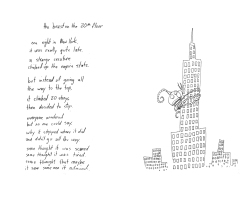 the beast on the 20th floor
one night in New York
it was really quite late
a strange creature
climbed up the empire state
but instead of going all
the way to the top,
it climbed 20 stories
then decided to stop.
everyone wondered
but no one could say
why it stopped where it did
and didn't go all the way
some thought it was scared
some thought it was tired
some thought that maybe
it saw some one it admired.